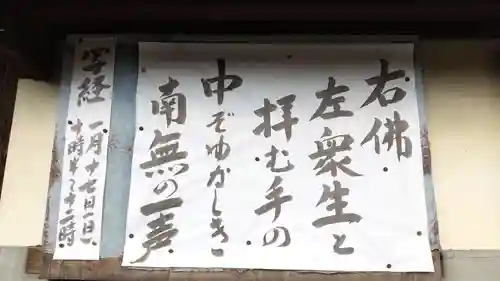 右佛
左衆生と
拝む手の
中ぞゆかしき
南無の一声
写経
一月十七日一日
十時半〜十二時